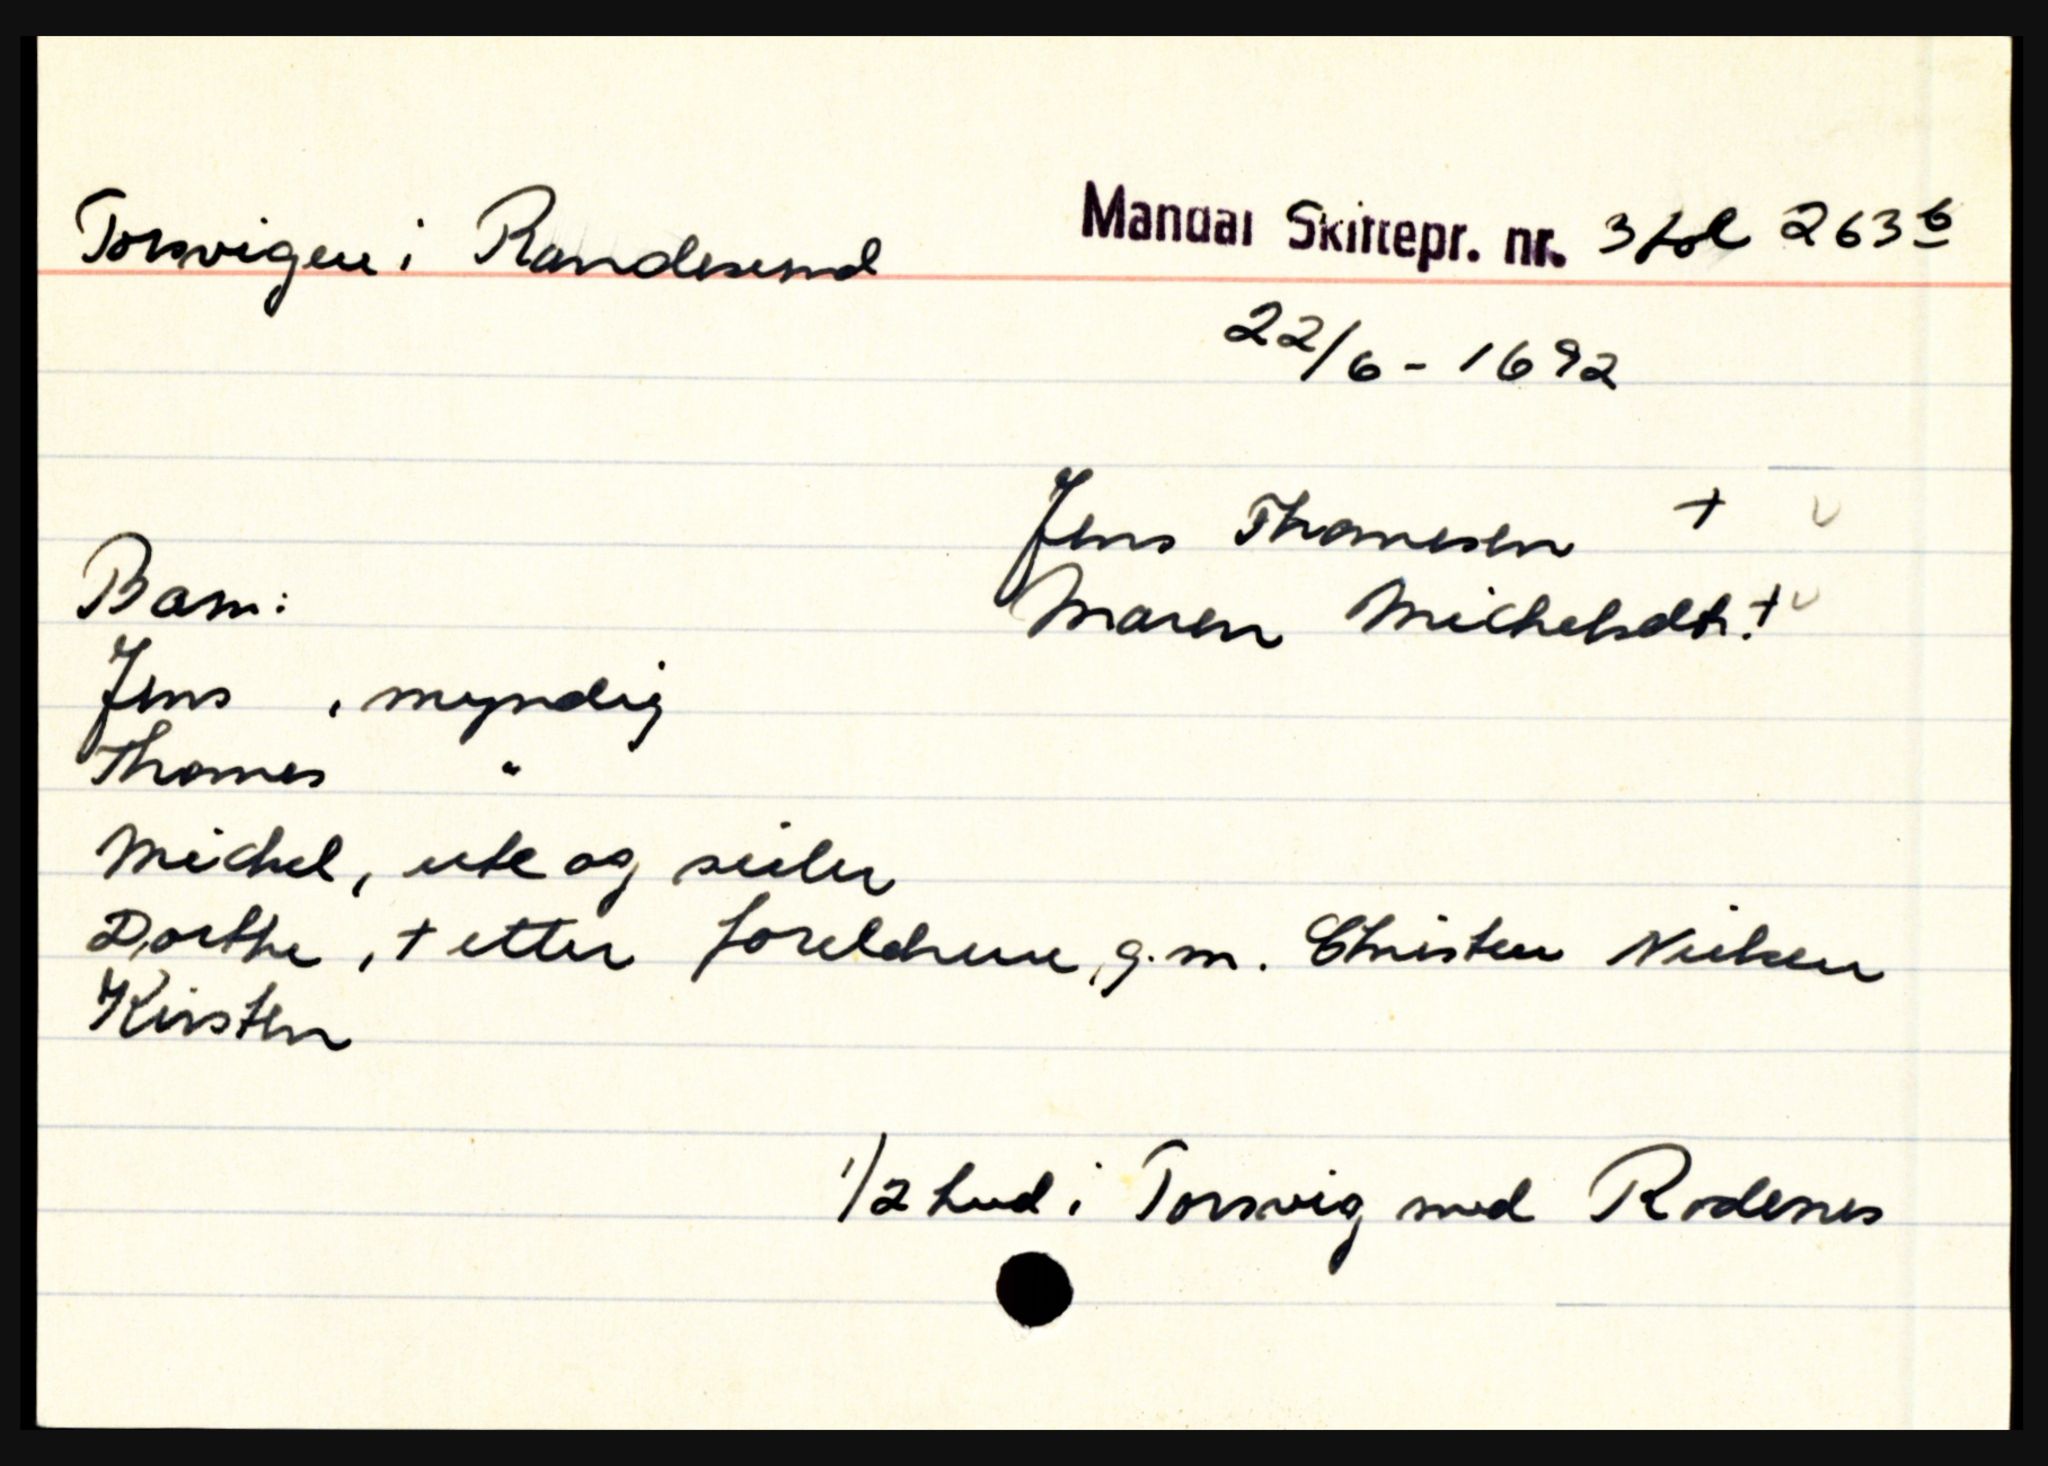 Torsvigen i Randesund
Mandal Skiftepr. nr. 3 fol 263 b
22/6 - 1692
Jens Thomesen +
Maren Michelsdtr. +
Barn:
Jens , myndig
Thomes "
Michel, ute og seiler
Dorthe , + etter foreldrene, g. m. Christen Nielsen
Kirsten
1/2 hud i Torsvig med Rodenes